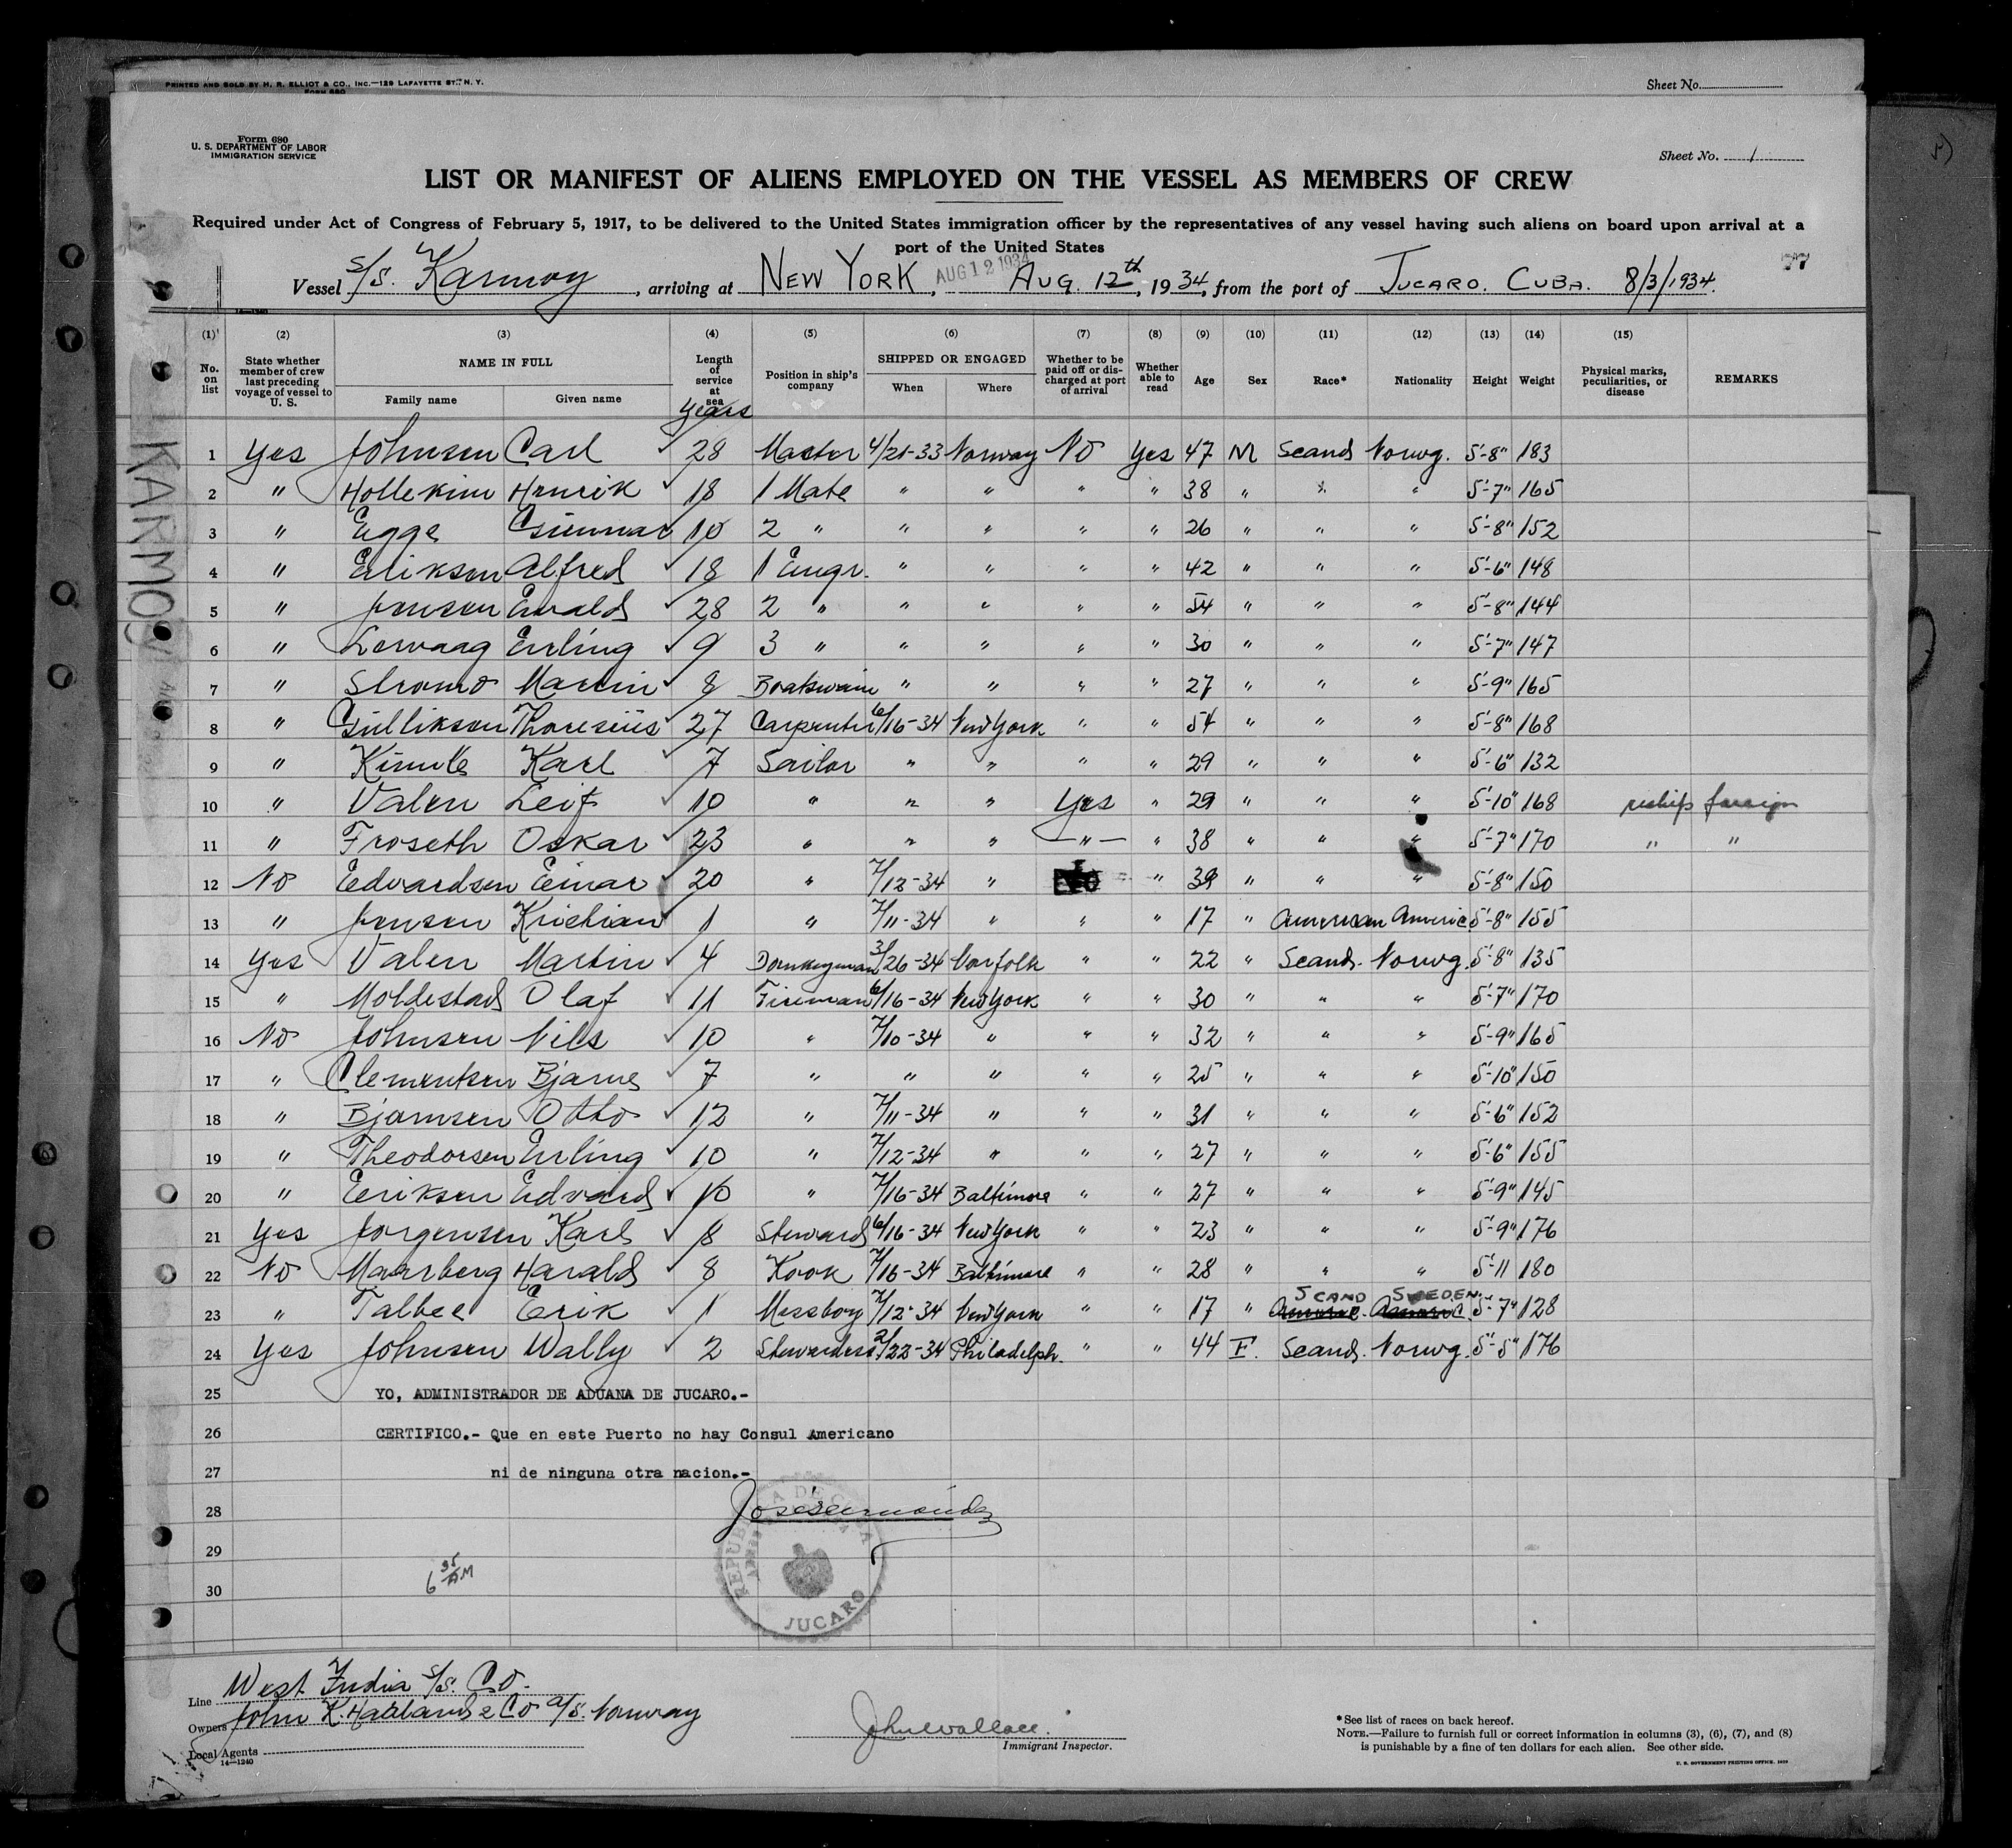 PRINTED AND SOLD BY H. R. ELLIOT & CO., INC.—129 LAFAYETTE ST., N. Y.
FORM 680
Sheet No.
Form 680
U. S. DEPARTMENT OF LABOR
IMMIGRATION SERVICE
Sheet No. 1
LIST OR MANIFEST OF ALIENS EMPLOYED ON THE VESSEL AS MEMBERS OF CREW
Required under Act of Congress of February 5, 1917, to be delivered to the United States immigration officer by the representatives of any vessel having such aliens on board upon arrival at a
port of the United States
AUG 12 1934
77
Vessel S/S. Karmoy, arriving at NEW YORK, AUG. 12th, 1934, from the port of JUCARO. CUBA. 8/3/1934.
14—1240
(1) (2) (3) (4) (5) (6) (7) (8) (9) (10) (11) (12) (13) (14) (15)
No. on list
State whether member of crew last preceding voyage of vessel to U. S.
NAME IN FULL
Family name Given name
Length of service at sea
years
Position in ship's company
SHIPPED OR ENGAGED
When Where
Whether to be paid off or discharged at port of arrival
Whether able to read
Age Sex Race* Nationality Height Weight
Physical marks, peculiarities, or disease
REMARKS
1 Yes Johnsen Carl 28 Master 4/21-33 Norway No Yes 47 M Scand Norwg. 5'-8" 183
2 " Hollekim Henrik 18 1 Mate " " " " 38 " " " 5'-7" 165
3 " Egge Gunnar 10 2 " " " " " 26 " " " 5'-8" 152
4 " Eriksen Alfred 18 1 Engr. " " " " 42 " " " 5'-6" 148
5 " Jensen Ewald 28 2 " " " " " 54 " " " 5'-8" 144
6 " Lervaag Erling 9 3 " " " " " 30 " " " 5'-7" 147
7 " Stromo Martin 8 Boatswain " " " " 27 " " " 5'-9" 165
8 " Gulliksen Thoresius 27 Carpenter 6/16-34 New York " " 54 " " " 5'-8" 168
9 " Karl 7 Sailor " " " " 29 " " " 5'-6" 132
10 " Valen Leif 10 " " " Yes " 29 " " " 5'-10" 168 reships foreign
11 " Froseth Oskar 23 " " " —"— " 38 " " " 5'-7" 170 " "
12 No Edvardsen Einar 20 " 7/12-34 " " 39 " " " 5'-8" 150
13 " Jensen Kristian 1 " 7/11-34 " " " 17 " American Americ. 5'-8" 155
14 Yes Valen Martin 4 Donkeyman 3/26-34 Norfolk " " 22 " Scand. Norwg. 5'-8" 135
15 " Moldestad Olaf 11 Fireman 6/16-34 New York " " 30 " " " 5'-7" 170
16 No Johnsen Nils 10 " 7/10-34 " " " 32 " " " 5'-9" 165
17 " Clementsen Bjarne 7 " " " " " 25 " " " 5'-10" 150
18 " Bjornsen Otto 12 " 7/11-34 " " " 31 " " " 5'-6" 152
19 " Theodorsen Erling 10 " 7/12-34 " " " 27 " " " 5'-6" 155
20 " Eriksen Edvard 10 " 7/16-34 Baltimore " " 27 " " " 5'-9" 145
21 Yes Jorgensen Karl 8 Steward 6/16-34 New York " " 23 " " " 5'-9" 176
22 No Maarberg Harald 8 Kook 7/16-34 Baltimore " " 28 " " " 5'-11 180
SCAND SWEDEN.
23 " Talbee Erik 1 Messboy 7/12-34 New York " " 17 " 5'-7" 128
24 Yes Johnsen Wally 2 Stewardess 2/22-34 Philadelph. " " 44 F. Scand. Norwg. 5'-5" 176
25 YO, ADMINISTRADOR DE ADUANA DE JUCARO.-
26 CERTIFICO.- Que en este Puerto no hay Consul Americano
27 ni de ninguna otra nacion.-
28
29
30
6 35 AM
JUCARO
KARMOY
Line West India S/S. Co.
Owners John K. Haaland & Co a/s. Norway
Local Agents
14—1240
John Wallace.
Immigrant Inspector.
*See list of races on back hereof.
NOTE.—Failure to furnish full or correct information in columns (3), (6), (7), and (8)
is punishable by a fine of ten dollars for each alien. See other side.
U. S. GOVERNMENT PRINTING OFFICE